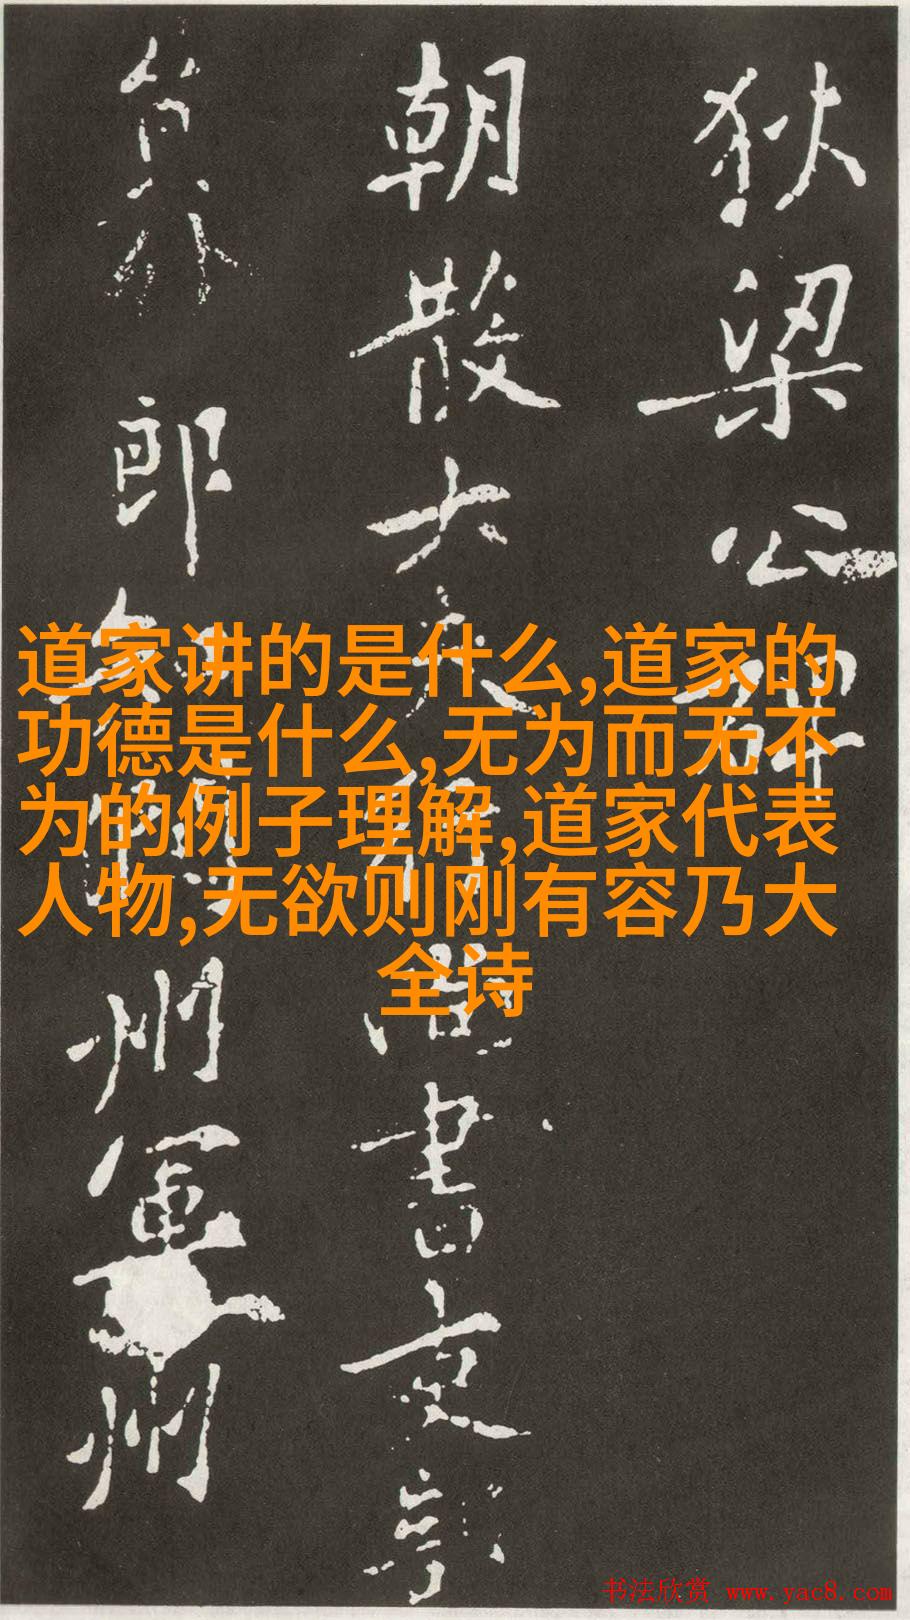 狄梁公碑
朝散大夫行尚書吏
員外郎知潤州軍州
道家讲的是什么,道家的
功德是什么,无为而无不
为的例子理解,道家代表
人物,无欲则刚有容乃大
全诗
书法欣赏 www.yac8.com